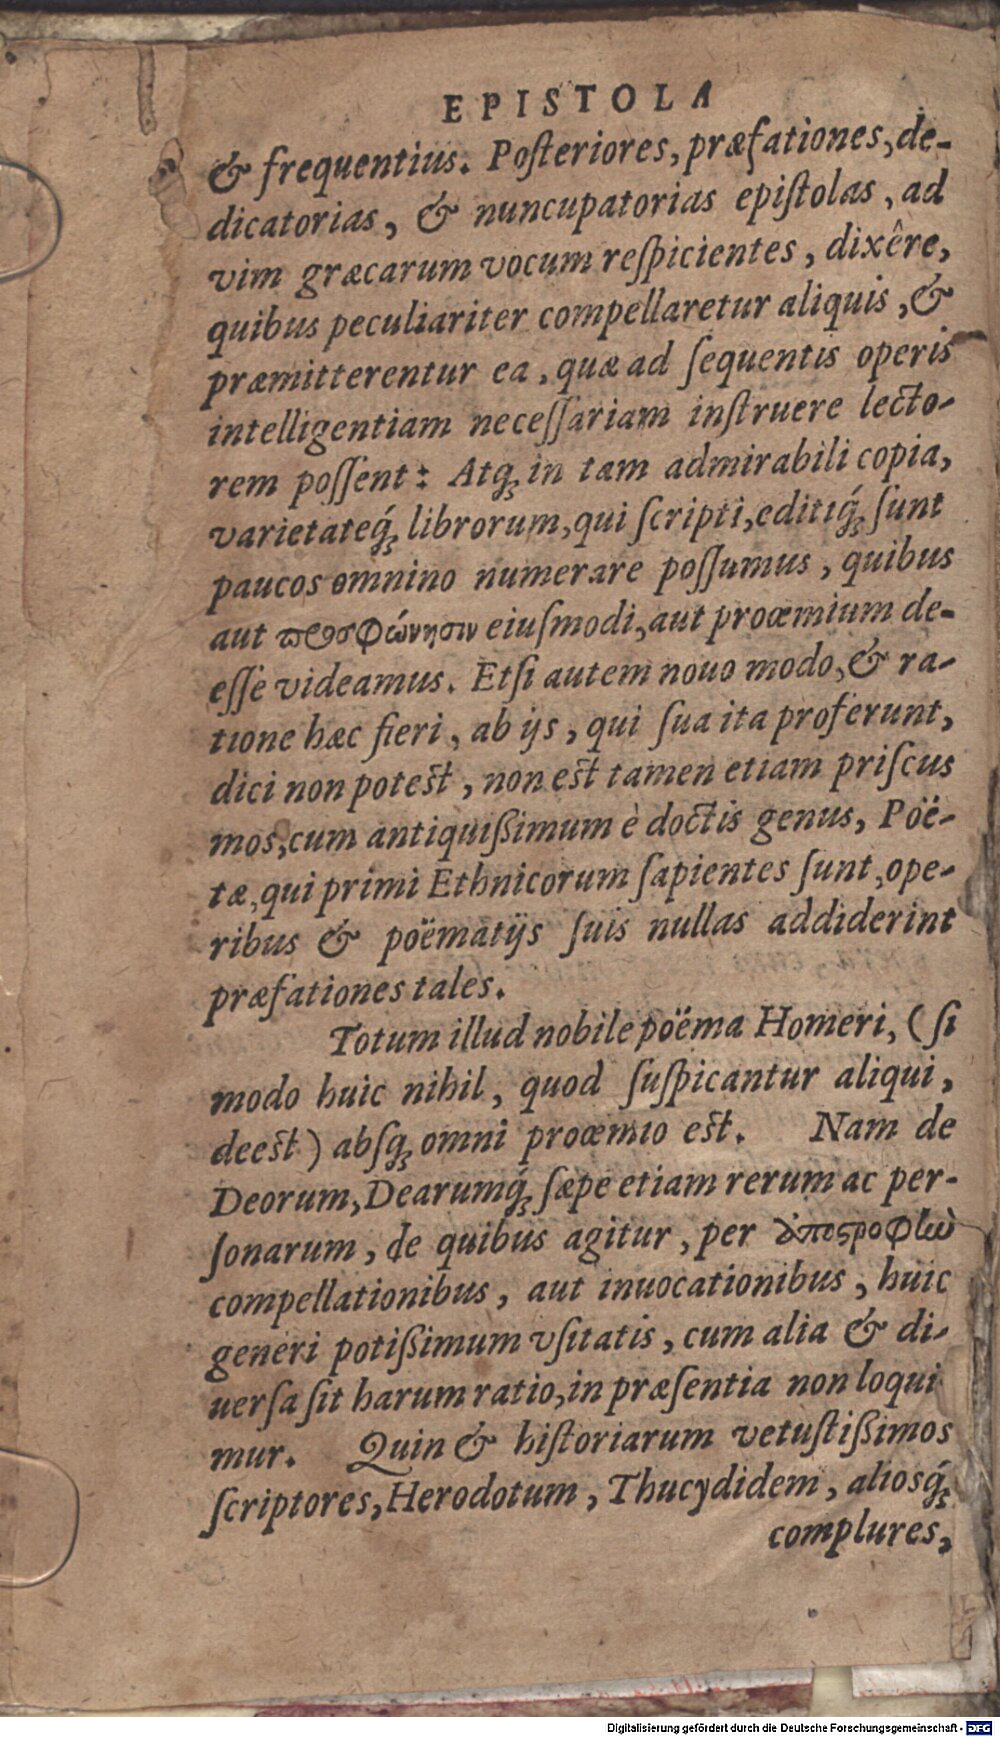 EPISTOLA
& frequentius. Poſteriores, præfationes, de-
dicatorias, & nuncupatorias epiſtolas, ad
vim græcarum vocum reſpicientes, dixêre,
quibus peculiariter compellaretur aliquis, &
præmitterentur ea, quæ ad ſequentis operis
intelligentiam neceſſariam inſtruere lecto-
rem poſſent: Atqꝫ in tam admirabili copia,
varietateqꝫ́ librorum, qui ſcripti, editiqꝫ́ ſunt
paucos omnino numerare poſſumus, quibus
aut προσφώνησιν eiuſmodi, aut proœmium de-
eſſe videamus. Etſi autem nouo modo, & ra-
tione hæc fieri, ab ijs, qui ſua ita proferunt,
dici non poteſt, non eſt tamen etiam priſcus
mos, cum antiquißimum è doctis genus, Poë-
tæ, qui primi Ethnicorum ſapientes ſunt, ope-
ribus & poëmatijs ſuis nullas addiderint
præfationes tales.
Totum illud nobile poëma Homeri, (ſi
modo huic nihil, quod ſuſpicantur aliqui,
deeſt) abſqꝫ omni proœmio eſt. Nam de
Deorum, Dearumqꝫ́ ſæpe etiam rerum ac per-
ſonarum, de quibus agitur, per ἀποϛροφὼ
compellationibus, aut inuocationibus, huic
generi potißimum vſitatis, cum alia & di-
uerſa ſit harum ratio, in præſentia non loqui
mur. Quin & hiſtoriarum vetuſtißimos
ſcriptores, Herodotum, Thucydidem, alioſqꝫ́
complures,
Digitalisierung gefördert durch die Deutsche Forschungsgemeinschaft - DFG